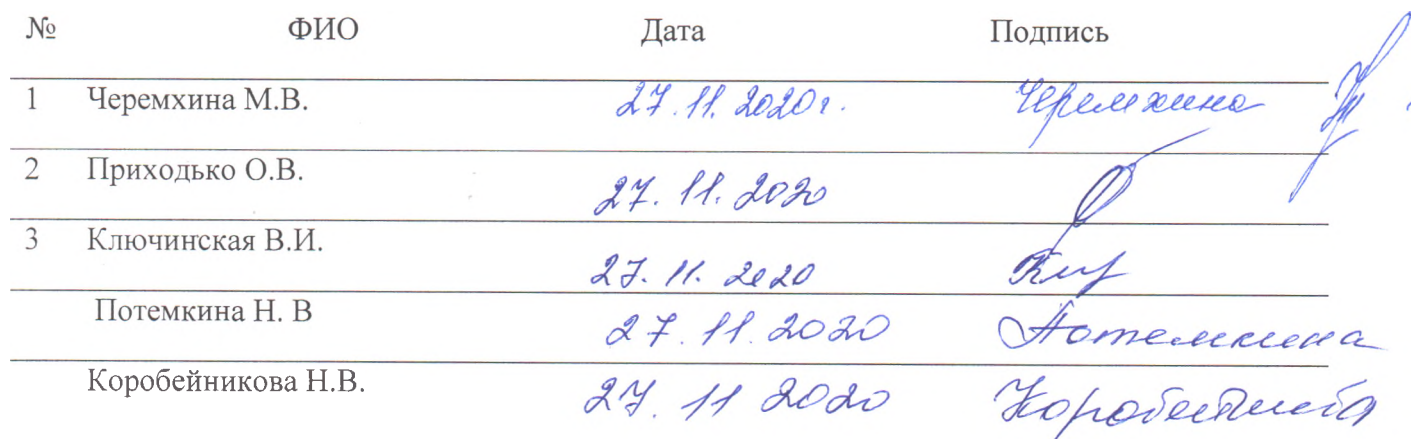 № ФИО Дата Подпись
1 Черемхина М.В. 27.11.2020г. Черемхина
2 Приходько О.В. 27.11.2020
3 Ключинская В.И. 27.11.2020
Потемкина Н. В 27.11.2020 Потемкина
Коробейникова Н.В. 27.11 2020